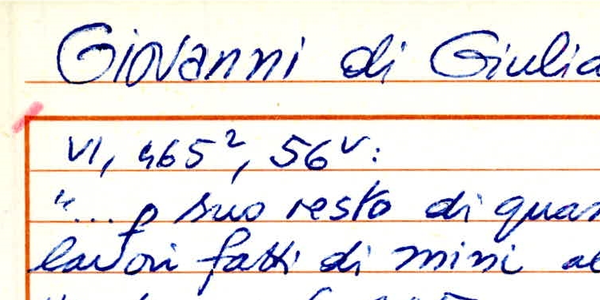 Giovanni di Giulia
VI, 465², 56v:
"... p suo resto di quan
lavori fatti di mini al